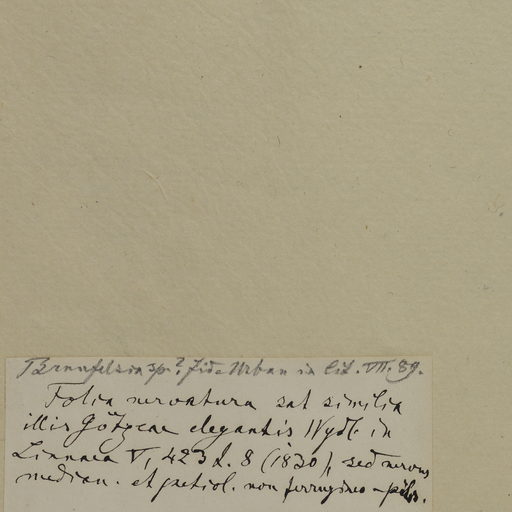 Brunfelsia sp.? fide Urban in lit. VII. 89.
Folia nervatura sat similia
illis Götzeae elegantis Wydl. in
Linnaea V, 423 t. 8 (1830), sed nervus
median. et petiol. non ferrugineo-pilos.